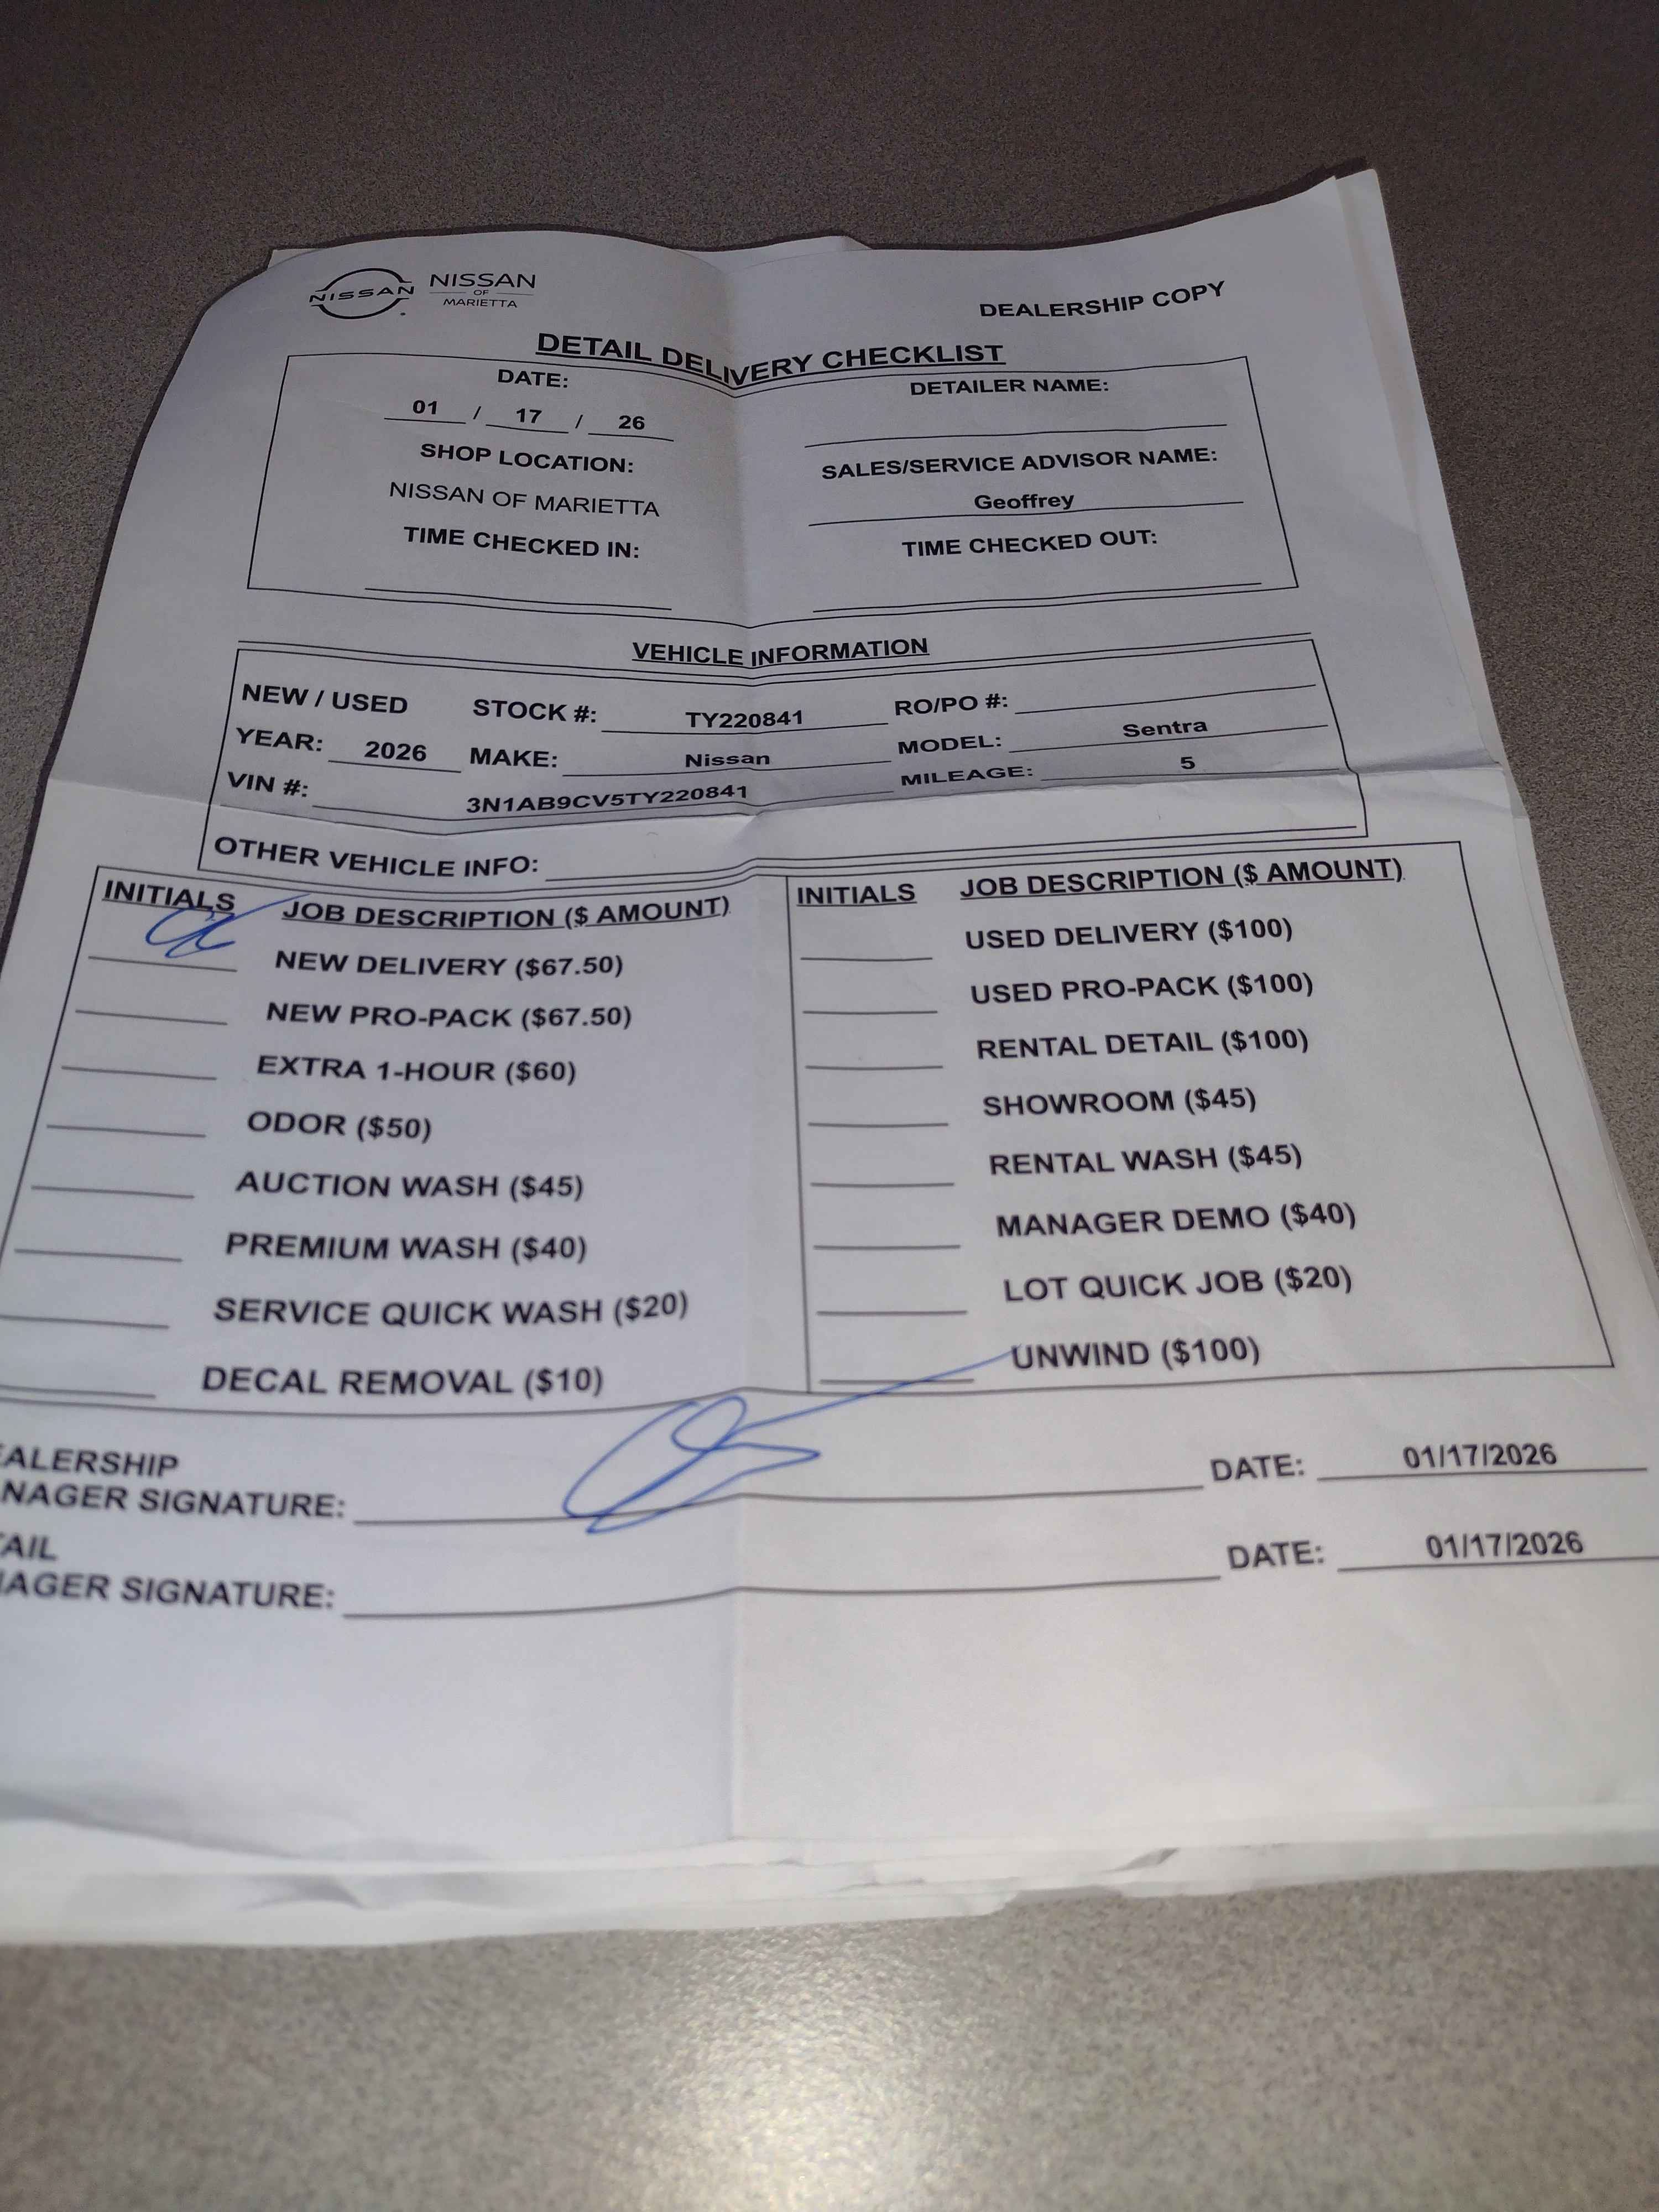 NISSAN
NISSAN
OF
MARIETTA
DEALERSHIP COPY
DETAIL DELIVERY CHECKLIST
DATE:
01 / 17 / 26
SHOP LOCATION:
NISSAN OF MARIETTA
TIME CHECKED IN:
DETAILER NAME:
SALES/SERVICE ADVISOR NAME:
Geoffrey
TIME CHECKED OUT:
VEHICLE INFORMATION
NEW / USED STOCK #: TY220841 RO/PO #:
YEAR: 2026 MAKE: Nissan MODEL: Sentra
VIN #: 3N1AB9CV5TY220841 MILEAGE: 5
OTHER VEHICLE INFO:
INITIALS JOB DESCRIPTION ($ AMOUNT)
NEW DELIVERY ($67.50)
NEW PRO-PACK ($67.50)
EXTRA 1-HOUR ($60)
ODOR ($50)
AUCTION WASH ($45)
PREMIUM WASH ($40)
SERVICE QUICK WASH ($20)
DECAL REMOVAL ($10)
INITIALS JOB DESCRIPTION ($ AMOUNT)
USED DELIVERY ($100)
USED PRO-PACK ($100)
RENTAL DETAIL ($100)
SHOWROOM ($45)
RENTAL WASH ($45)
MANAGER DEMO ($40)
LOT QUICK JOB ($20)
UNWIND ($100)
EALERSHIP
NAGER SIGNATURE: DATE: 01/17/2026
AIL
AGER SIGNATURE: DATE: 01/17/2026